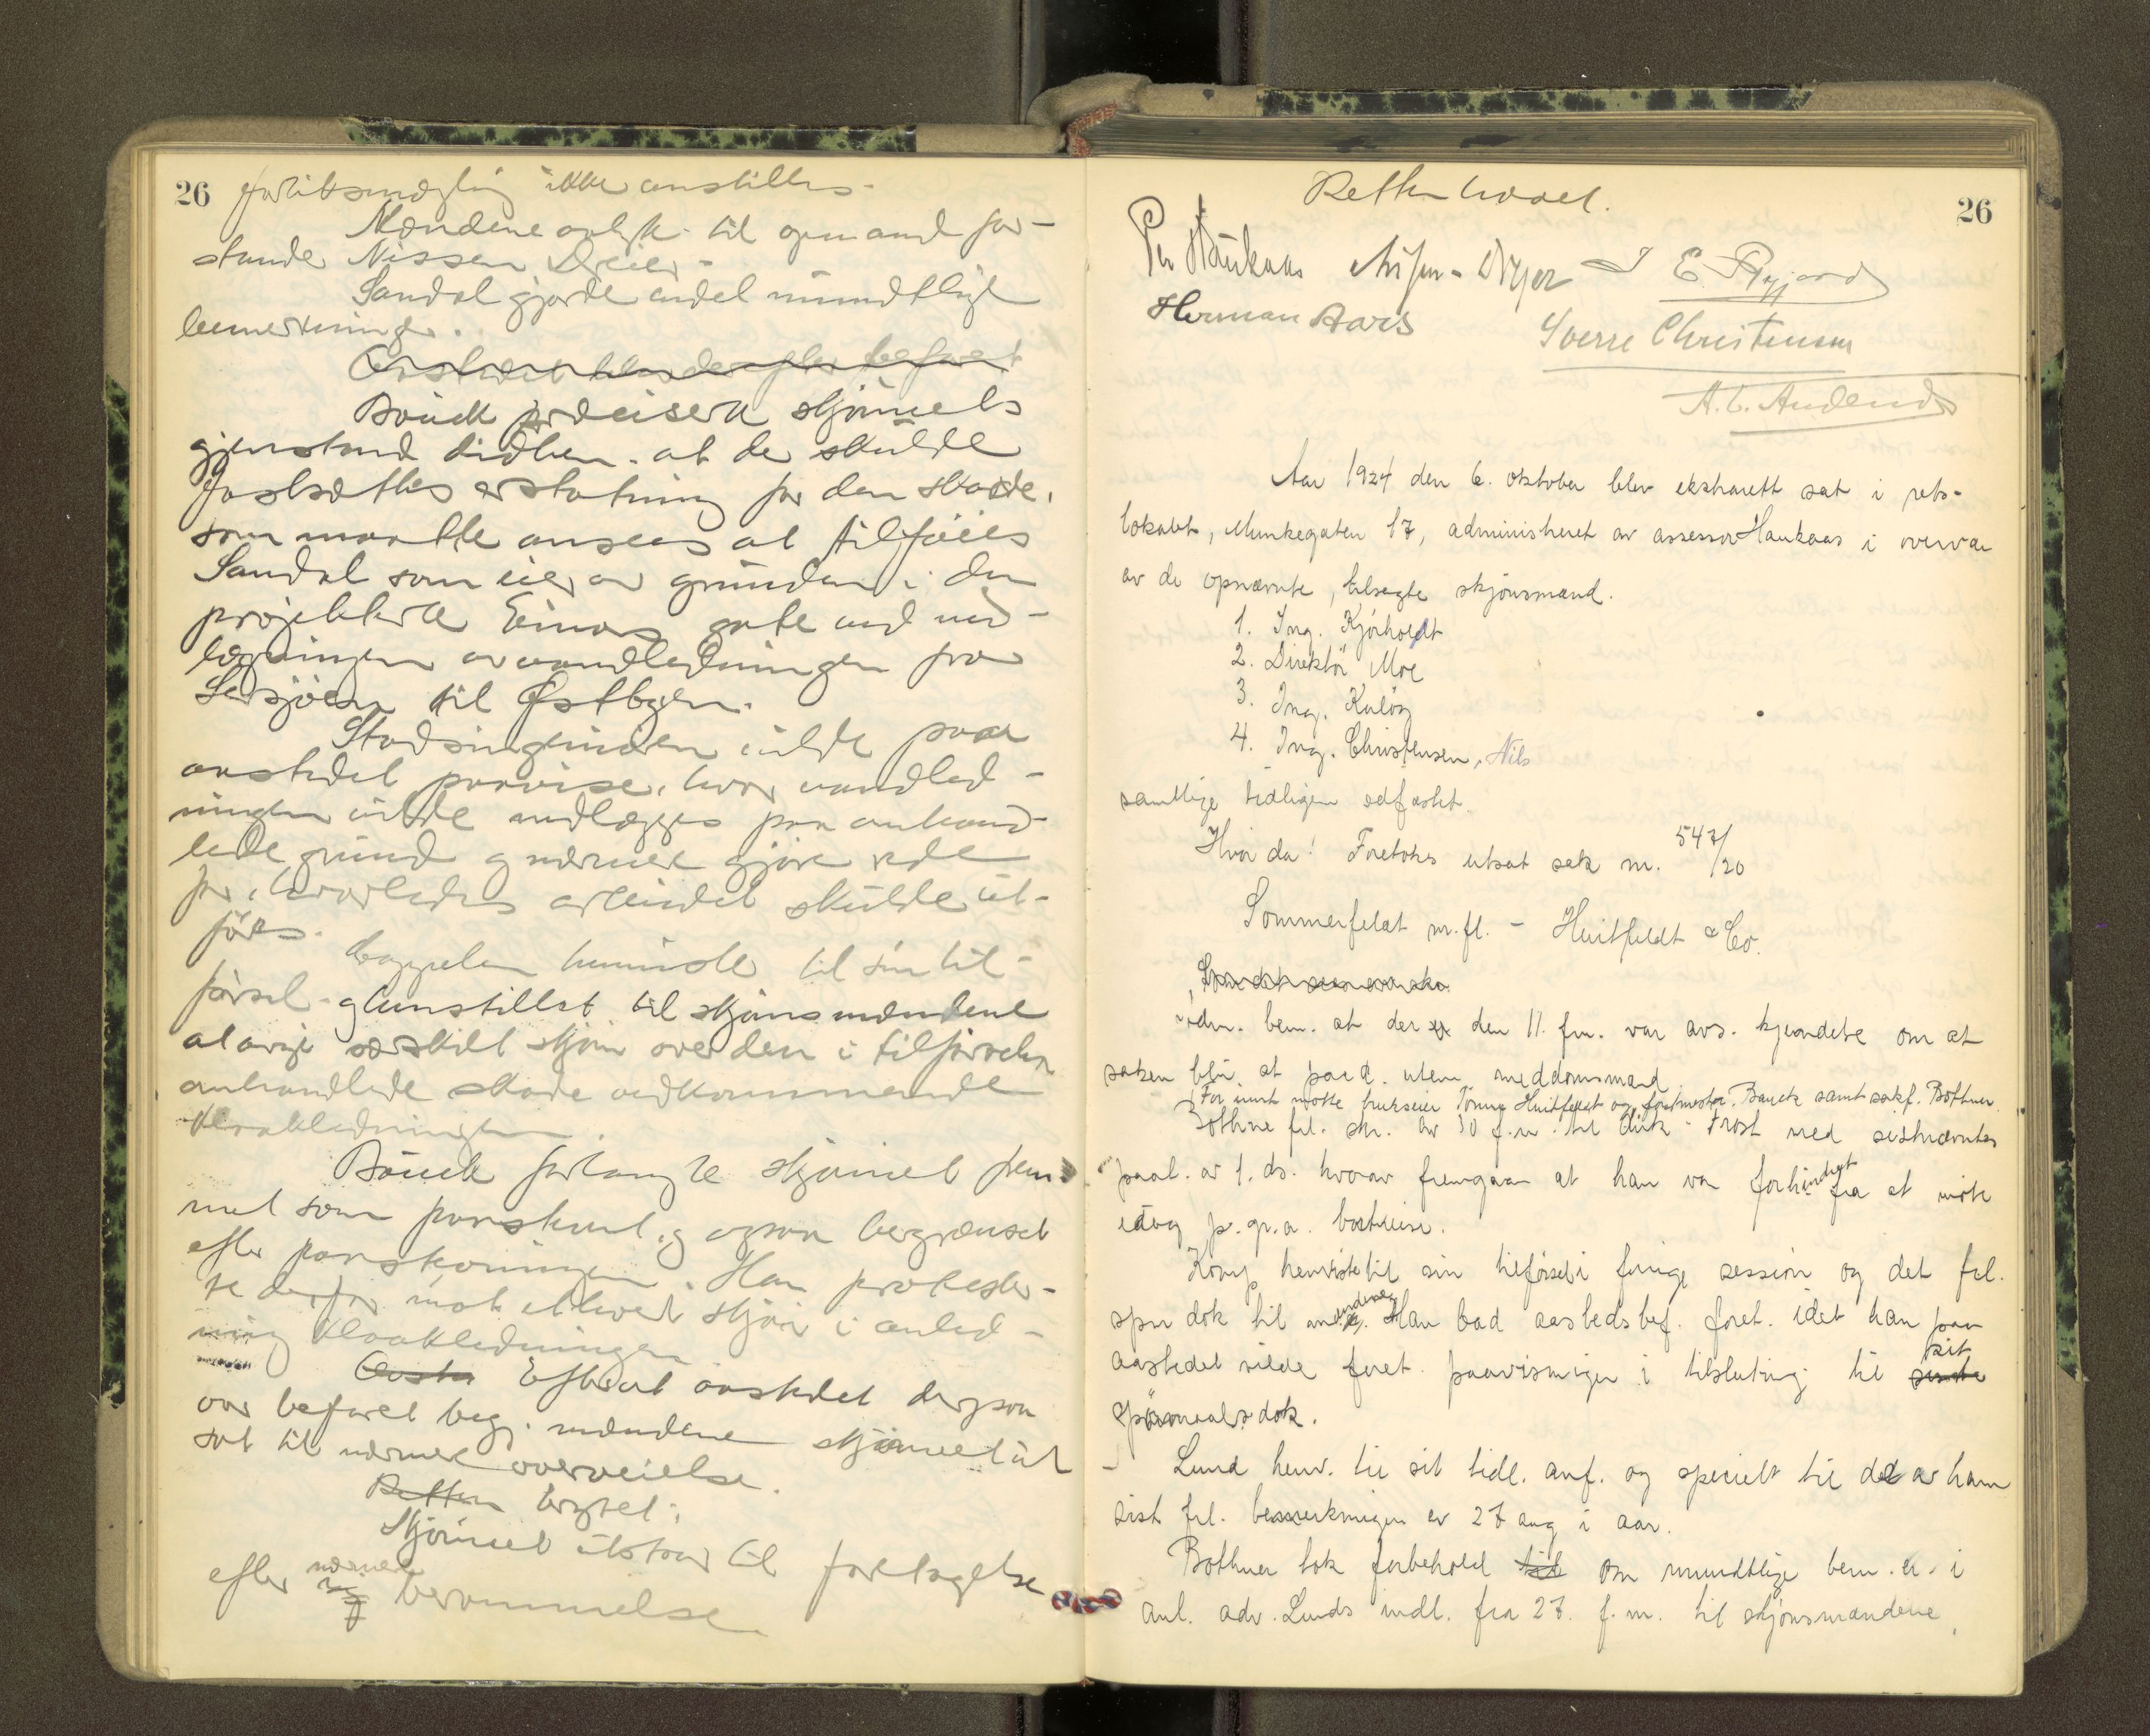 26
forliksmægling ikke anstilles.
Mændene valgte til opmand for-
stander Nissen Dreier.
Sandal gjorde endel mundtlige
bemerkninger.
Bauck præciserte skjønnets
gjenstand derhen. at der skulde
fastsættes erstatning for den skade,
som maatte ansees at tilføies
Sandal som eier av grunden i den
projekterte Einars gate ved ned-
lægningen av vandledningen fra
Lersjøen til Østbyen.
Stadsingeniøren vilde paa
aastedet paavise, hvor vandled-
ningen vilde nedlægges paa anhand-
lede grund og nærmere gjøre rede
for, hvorledes arbeidet skulde ut-
føres.
henviste til sin til-
førsel og henstillet til skjønsmændene
at avgi særskilt skjøn over den i tilførselen
anhandlede skade vedkommende
kloakledningen.
Bauck forlangte skjønnet frem-
met som paaskevnt og ogsaa begrænset
efter paaskevningen. Han protester-
te derfor mot ethvert skjøn i anled-
ning kloakledningen.
Efterat aastedet derpaa
var befaret beg. mændene skjønnet ut-
sat til nærmere overveielse.
Retten brytet:
Skjønnet utstaar til foretagelse
efter nærmere berammelse
Retten hævet.
26
Per Haukaas Nissen-Dreyer E. Ryjord
Herman Aars Sverre Christensen
A. C. Andersen
Aar 1924 den 6. oktober blev ekstrarett sat i rets-
lokalet, Munkegaten 17, administreret av assessor Haukaas i overvær
av de opnævnte, tilsagte skjønsmænd.
1. Ing. Kjørholdt
2. Direktør Moe
3. Ing. Kuløy
4. Ing. Christensen, Nils
samtlige tidligere edfæstet.
Hvor da! Foretokes utsat sak nr. 547/20
Sommerfeldt m.fl. - Huitfeldt & Co.
adm. bem. at der den 11. fm. var avs. kjendelse om at
saken blir at paad. uten meddomsmænd
For innst. møtte bruksier Tonny Huitfeldt og forstmester Bauck samt sakf. Bothner
Bothner frl. skr. av 30 f.m. til dirk. Frost med sistnævntes
paat. av 1. ds. hvorav fremgaar at han var forhindret fra at møte
idag p.gr.a. bortreise.
Komp henviste til sin tilførsel i forrige session og det frl.
spm dok til undersøg. Han bad aastedsbef. foret. idet han paa
aastedet vilde foret. paavisninger i tilslutning til sit
spørsmaalsdok.
Lund henv. til sit tidl. anf. og specielt til det av ham
sist frl. bemerkninger av 27 aug i aar.
Bothner tok forbehold om mundtlige bem.er. i
anl. adv. Lunds indl. fra 27. f.m. til skjønsmændene,